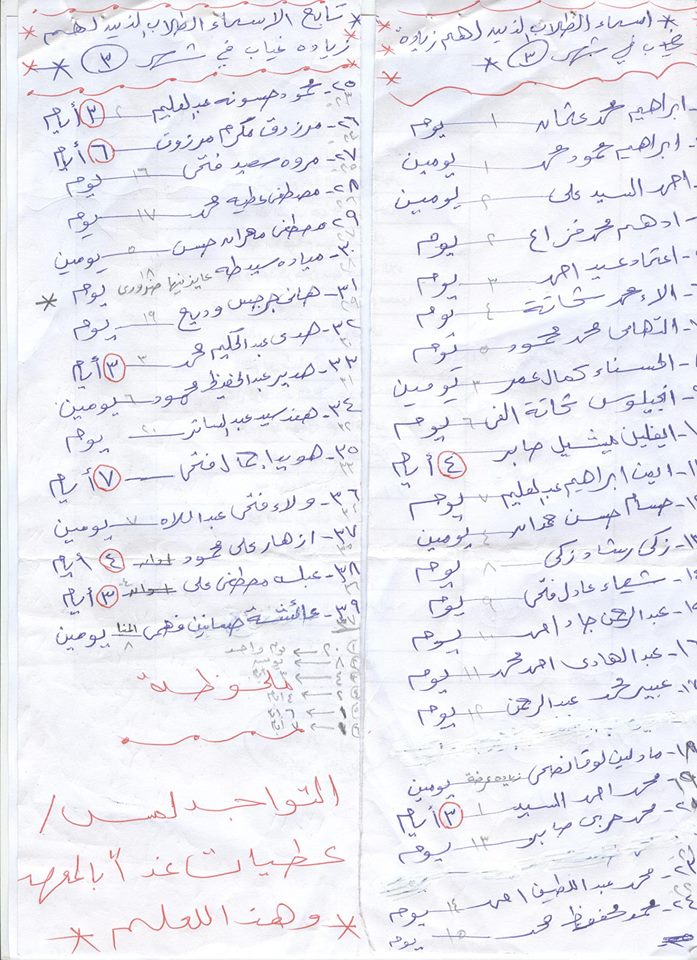 اسماء الطلاب لذين لهم زيادة
في شهر ٣
ابراهيم محمد عثمان ١ يوم
ابراهيم محمود محمد ١ يومين
احمد السيد على ٢ يومين
ادهم محمد فراع ٢ يوم
اعتماد عيد احمد ٣ يوم
الاء محمد شحاتة ٤ يوم
التهامى محمد محمود ٥ يوم
الحسناء كمال عمر ٣ يومين
انجيلوس شحاتة الفى ٦ يوم
ايفلين ميشيل صابر ٤ أيام
ايمن ابراهيم عبدالعليم ٧ يوم
حسام حسن حمدالله ٤ يومين
١٣- زكى رشاد زكى ٨ يوم
شيماء عادل فتحى ٩ يوم
عبدالرحمن جاد احمد ١٠ يوم
١٦- عبدالهادى احمد محمد ١١ يوم
١٧- عبير محمد عبدالرحمن ١٢ يوم
١٨- مادلين لوقا لضحى زياده عرضة يومين
١٩- محمد احمد السيد ١ ٣ أيام
٢٠- محمد حربى صابر ١٣ يوم
٢٣- محمد عبداللطيف احمد ١٤ يوم
٢٤- محمد محفوظ محمد ١٥ يوم
تابع الاسماء الطلاب لذين لهم
زياده غياب في شهر ٣
٢٥- محمود حسونه عبدالعليم ٢ ٣ أيام
٢٦- مرزوق مكرم مرزوق ٦ أيام
٢٧- مروه سعيد فتحى ١٦ يوم
٢٨- مصطفى عطيه محمد ١٧ يوم
٢٩- مصطفى مهران حسن ٥ يومين
٣٠- مياده سيد طه ١٨ يوم
٣١- هانى جرجس وديع ١٩ يوم
٣٢- هدى عبدالحكيم محمد ٣ ٣ أيام
٣٣- هدير عبدالحفيظ محمود ٦ يومين
٣٤- هند سيد عبدالساتر ٢٠ يوم
٣٥- هويدا جمال فتحى ٧ أيام
٣٦- ولاء فتحى عبداللاه ٧ يومين
٣٧- ازهار على محمود ٤ أيام
٣٨- عبله مصطفى على ٣ أيام
٣٩- عائشة فهمى ٨ يومين
ملحوظة
التواجد لمس/
عطيات عند أ بالمعهد
وهذا للعلم